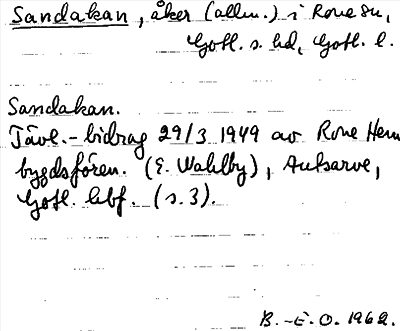 Sandakan, åker (allm.) i Rone sn,
Gotl. s. hd, Gotl. l.
Sandakan.
Tävl.-bidrag 29/3 1949 av Rone Hem
bygdsfören. (E. Wahlby), Autsarve,
Gotl. hbf. (s. 3).
B.-E. O. 1962.